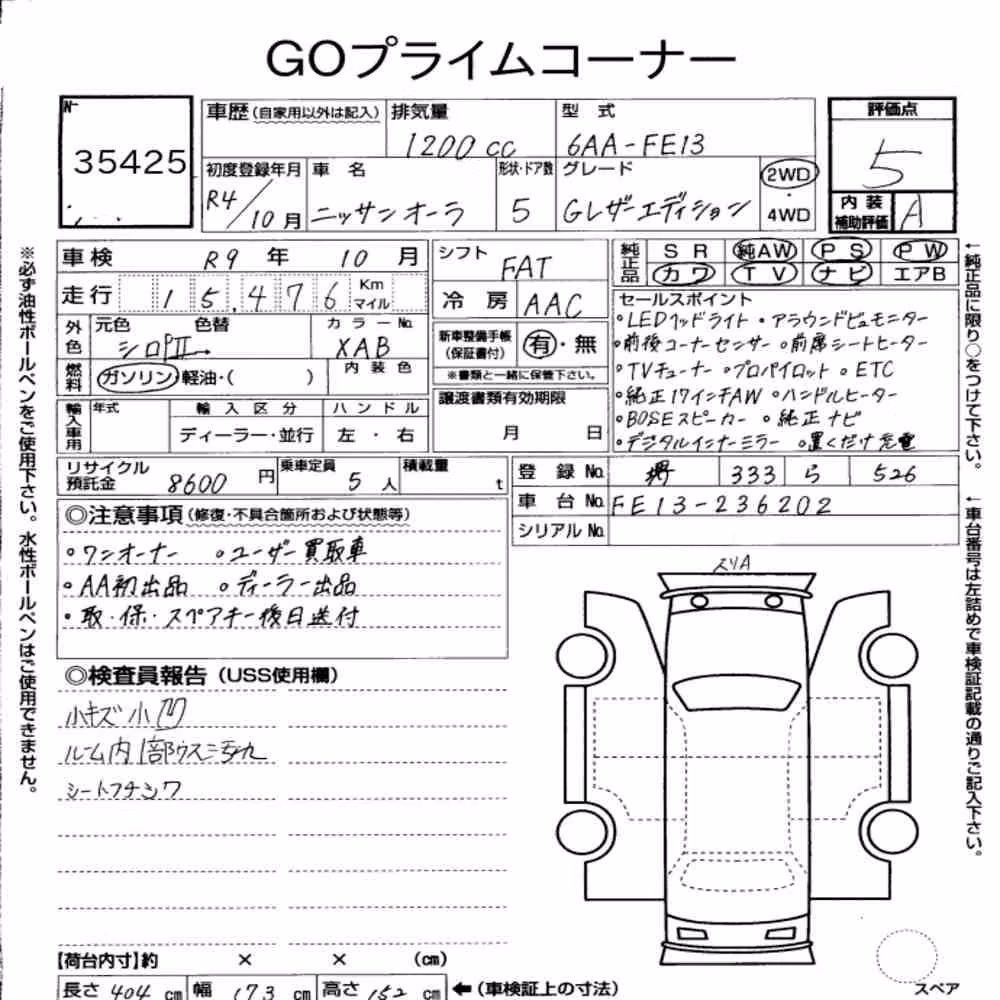 GOプライムコーナー
No
35425
車歴(自家用以外は記入)
排気量
1200cc
型 式
6AA-FE13
評価点
5
初度登録年月
R4/10月
車 名
ニッサン オーラ
形状・ドア数
5
グレード
Gレザーエディション
2WD
・
4WD
内装
補助評価
A
車検 R9年 10月
走行 15,476 Km
マイル
シフト
FAT
冷房 AAC
純正品
SR 純AW PS PW
カワ TV ナビ エアB
外色
元色 色替
シロPII
カラーNo.
XAB
燃料
ガソリン・軽油・( )
内 装 色
新車整備手帳
(保証書付)
有・無
※書類と一緒に保管下さい。
セールスポイント
・LEDヘッドライト ・アラウンドビュモニター
・前後コーナーセンサー ・前席シートヒーター
・TVチューナー ・プロパイロット ・ETC
・純正17インチAW ・ハンドルヒーター
・BOSEスピーカー ・純正ナビ
・デジタルインナーミラー ・置くだけ充電
輸入車用
年式
輸入区分
ディーラー・並行
ハンドル
左・右
譲渡書類有効期限
月 日
リサイクル
預託金
8600円
乗車定員
5人
積載量
t
登録No. 堺 333 ら 526
車台No. FE13-236202
シリアルNo.
◎注意事項(修復・不具合箇所および状態等)
・ワンオーナー ・ユーザー買取車
・AA初出品 ・ディーラー出品
・取・保・スペアキー後日送付
◎検査員報告(USS使用欄)
小キズ小凹
ルーム内1部ウスニ汚れ
シートフチシワ
スリA
スペア
【荷台内寸】約 × × (cm)
長さ 404 cm 幅 173 cm 高さ 152 cm ←(車検証上の寸法)
※必ず油性ボールペンをご使用下さい。水性ボールペンはご使用できません。
←純正品に限り○をつけて下さい。
←車台番号は左詰めで車検証記載の通りご記入下さい。